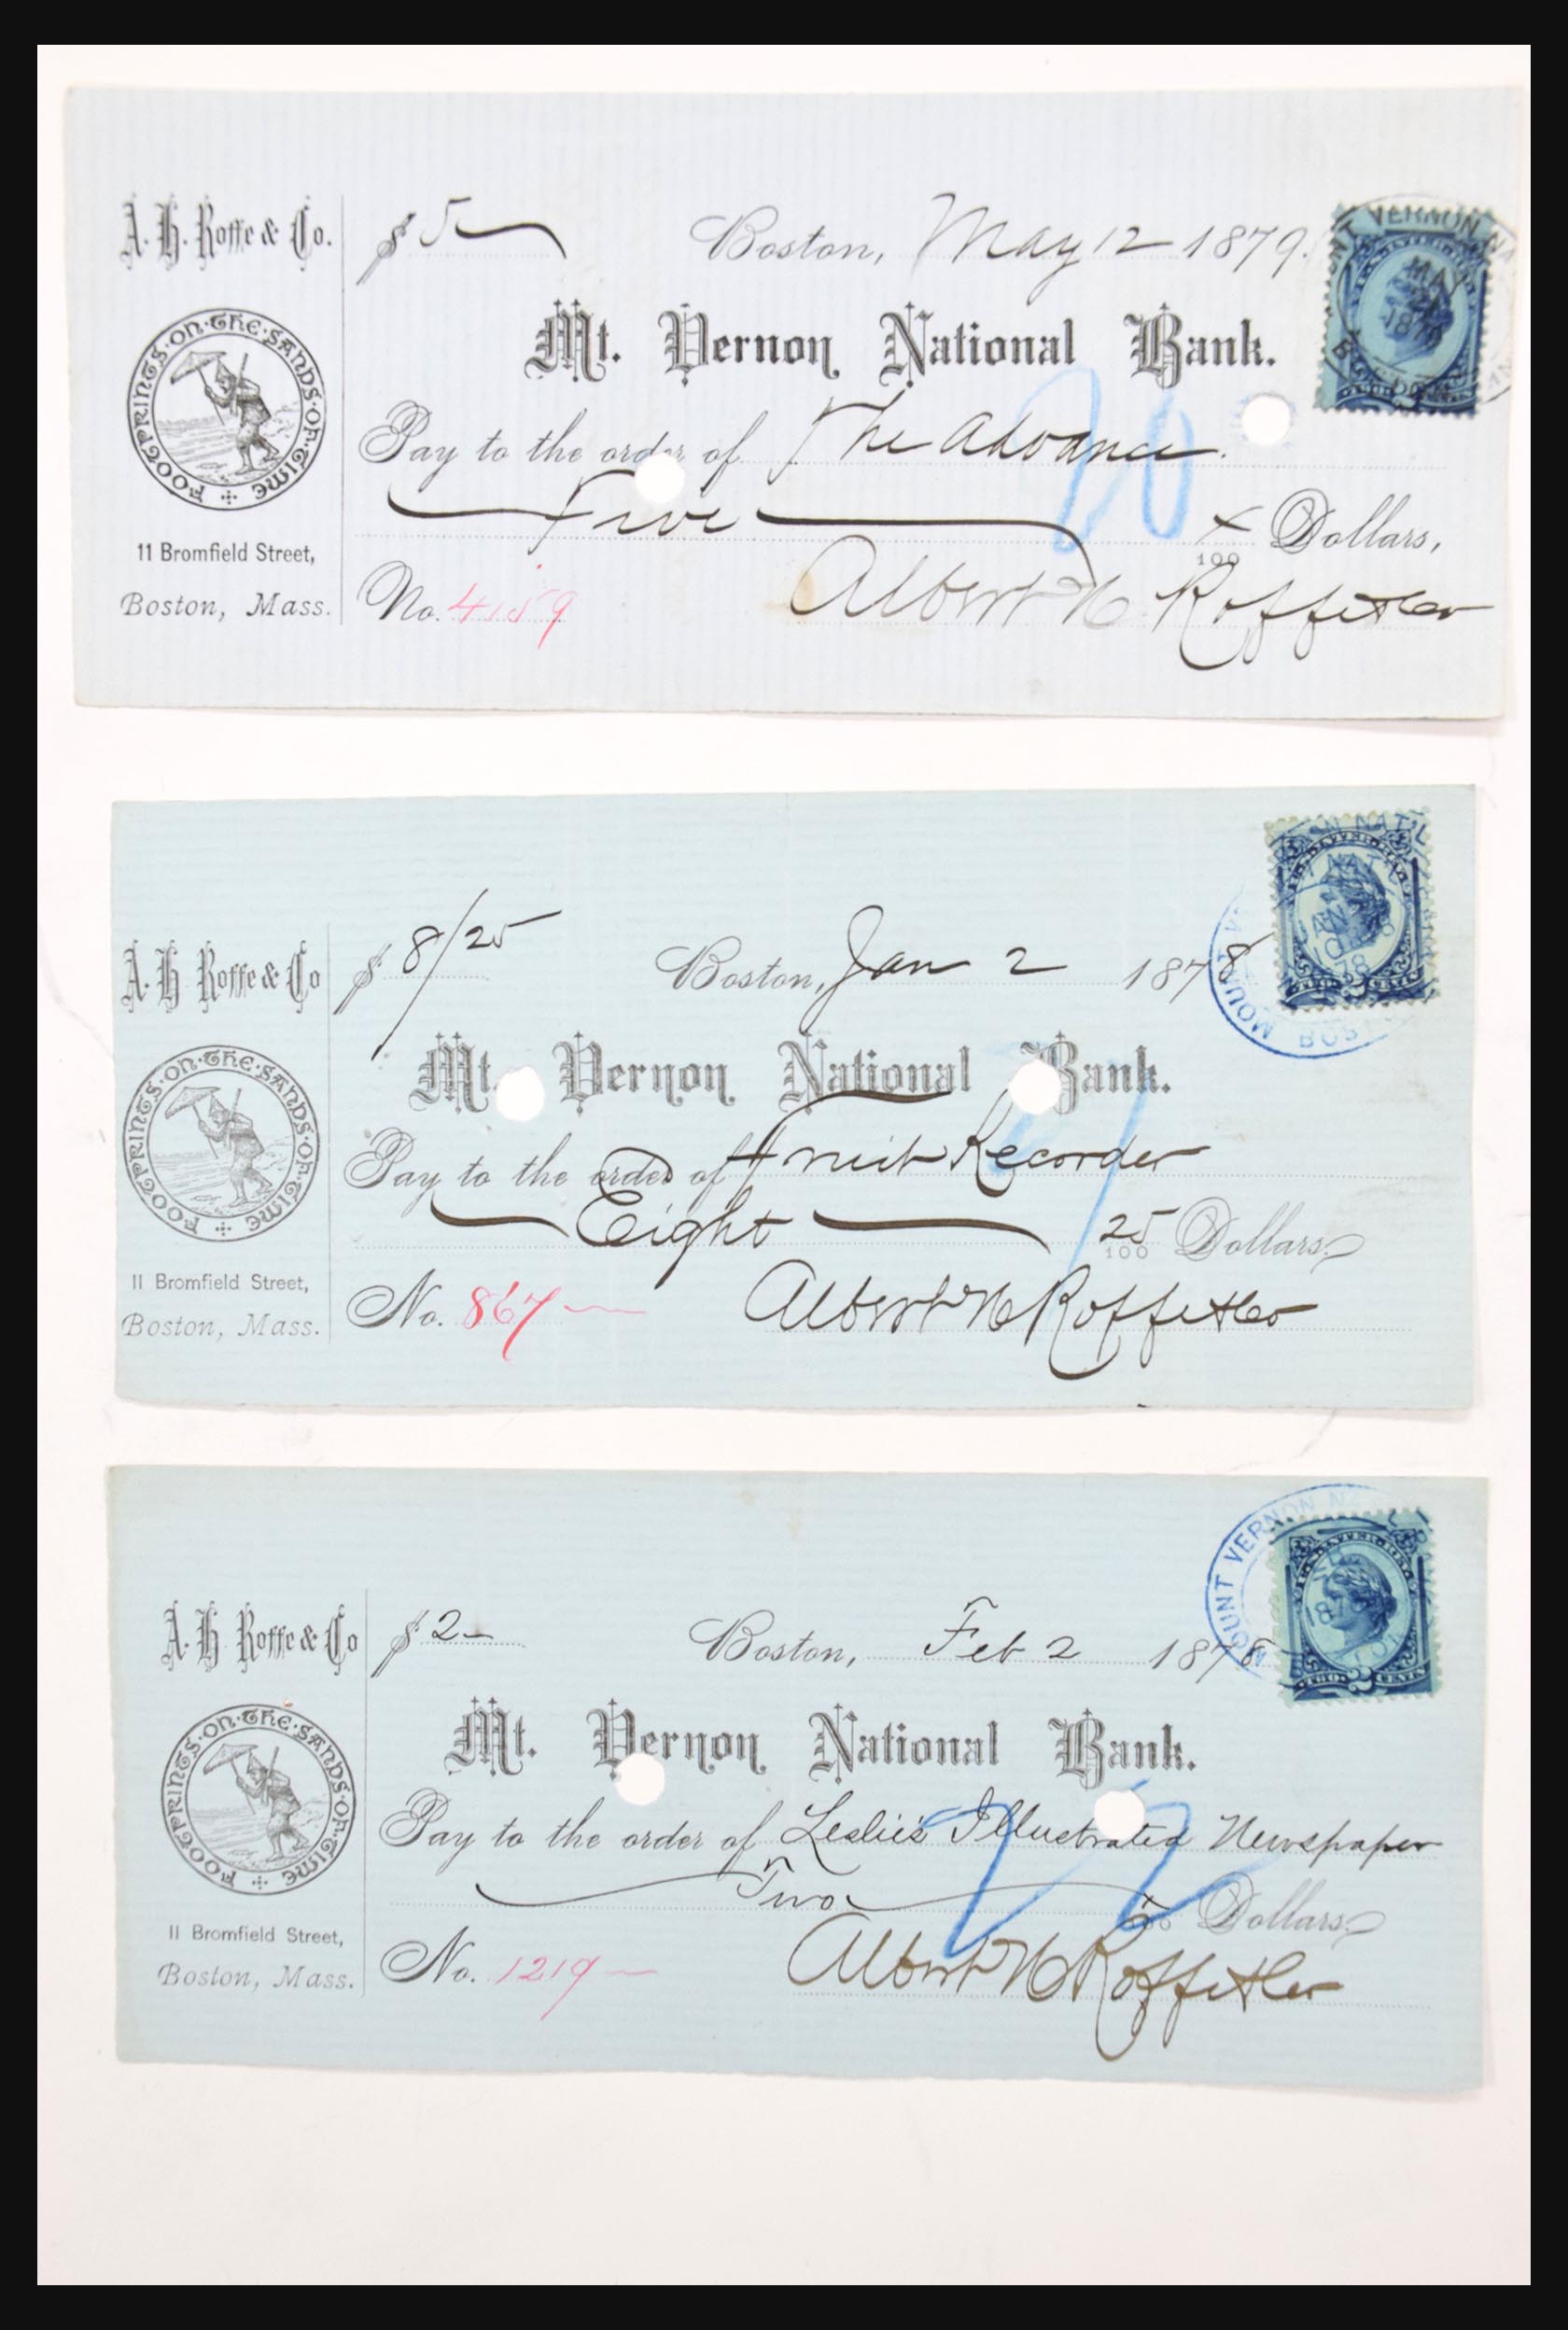 A. H. Roffe & Co.
$ 5
Boston, May 12 1879.
Mt. Vernon National Bank.
FOOTPRINTS·ON·THE·SANDS·OF·TIME
Pay to the order of The Advance.
Five x/100 Dollars,
11 Bromfield Street,
Boston, Mass.
No. 4159
Albert H Roffe & Co
20
NT VERNON NA
MAY
A H Roffe & Co
$ 8/25
Boston, Jan 2 1878
ON NAT'L
MOUNT V
BOS
Mt. Vernon National Bank.
FOOTPRINTS·ON·THE·SANDS·OF·TIME
Pay to the order of Fruit Recorder
Eight 25/100 Dollars
11 Bromfield Street,
Boston, Mass.
No. 867
Albert H Roffe & Co
A H Roffe & Co
$ 2
Boston, Feb 2 1878
MOUNT VERNON N
TWO CENTS
Mt. Vernon National Bank.
FOOTPRINTS·ON·THE·SANDS·OF·TIME
Pay to the order of Leslie's Illustrated Newspaper
Two Dollars
11 Bromfield Street,
Boston, Mass.
No. 1219
Albert H Roffe & Co
22